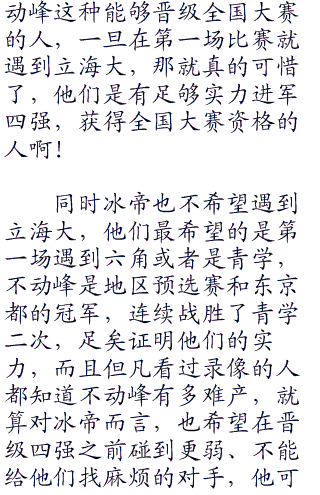 动峰这种能够晋级全国大赛
的人，一旦在第一场比赛就
遇到立海大，那就真的可惜
了，他们是有足够实力进军
四强，获得全国大赛资格的
人啊！
同时冰帝也不希望遇到
立海大，他们最希望的是第
一场遇到六角或者是青学，
不动峰是地区预选赛和东京
都的冠军，连续战胜了青学
二次，足矣证明他们的实
力，而且但凡看过录像的人
都知道不动峰有多难产，就
算对冰帝而言，也希望在晋
级四强之前碰到更弱、不能
给他们找麻烦的对手，他可